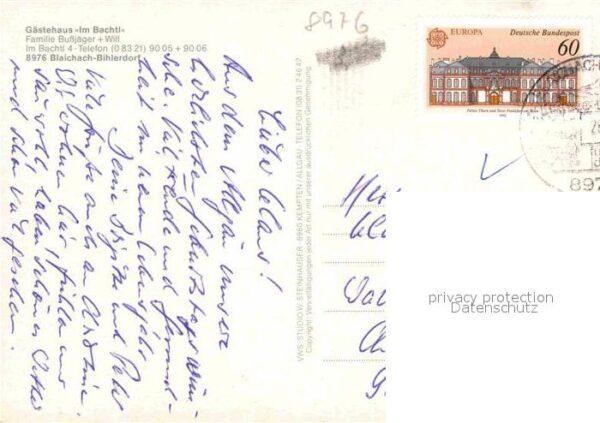 Gästehaus «Im Bachtl»
Familie Bußjäger + Will
Im Bachtl 4 · Telefon (0 83 21) 90 05 + 90 06
8976 Blaichach-Bihlerdorf
8976
EUROPA Deutsche Bundespost
60
897
Lieber Claus!
Aus dem Allgäu unsere
herzlichsten Geburtstagswün-
sche. Viel Freude und Gesund-
heit im neuen Lebensjahr
Deine Brigitte und Peter
Viele Grüße auch an
Wir wohnen hier, fühlen uns
sehr wohl, haben schönes Wetter
und schon viel gesehen.
VWS-STUDIO W. STEINHAUSER · 8960 KEMPTEN / ALLGÄU · TELEFON (08 31) 2 46 42
Copyright: Vervielfältigungen jeder Art nur mit unserer ausdrücklichen Genehmigung.
privacy protection
Datenschutz